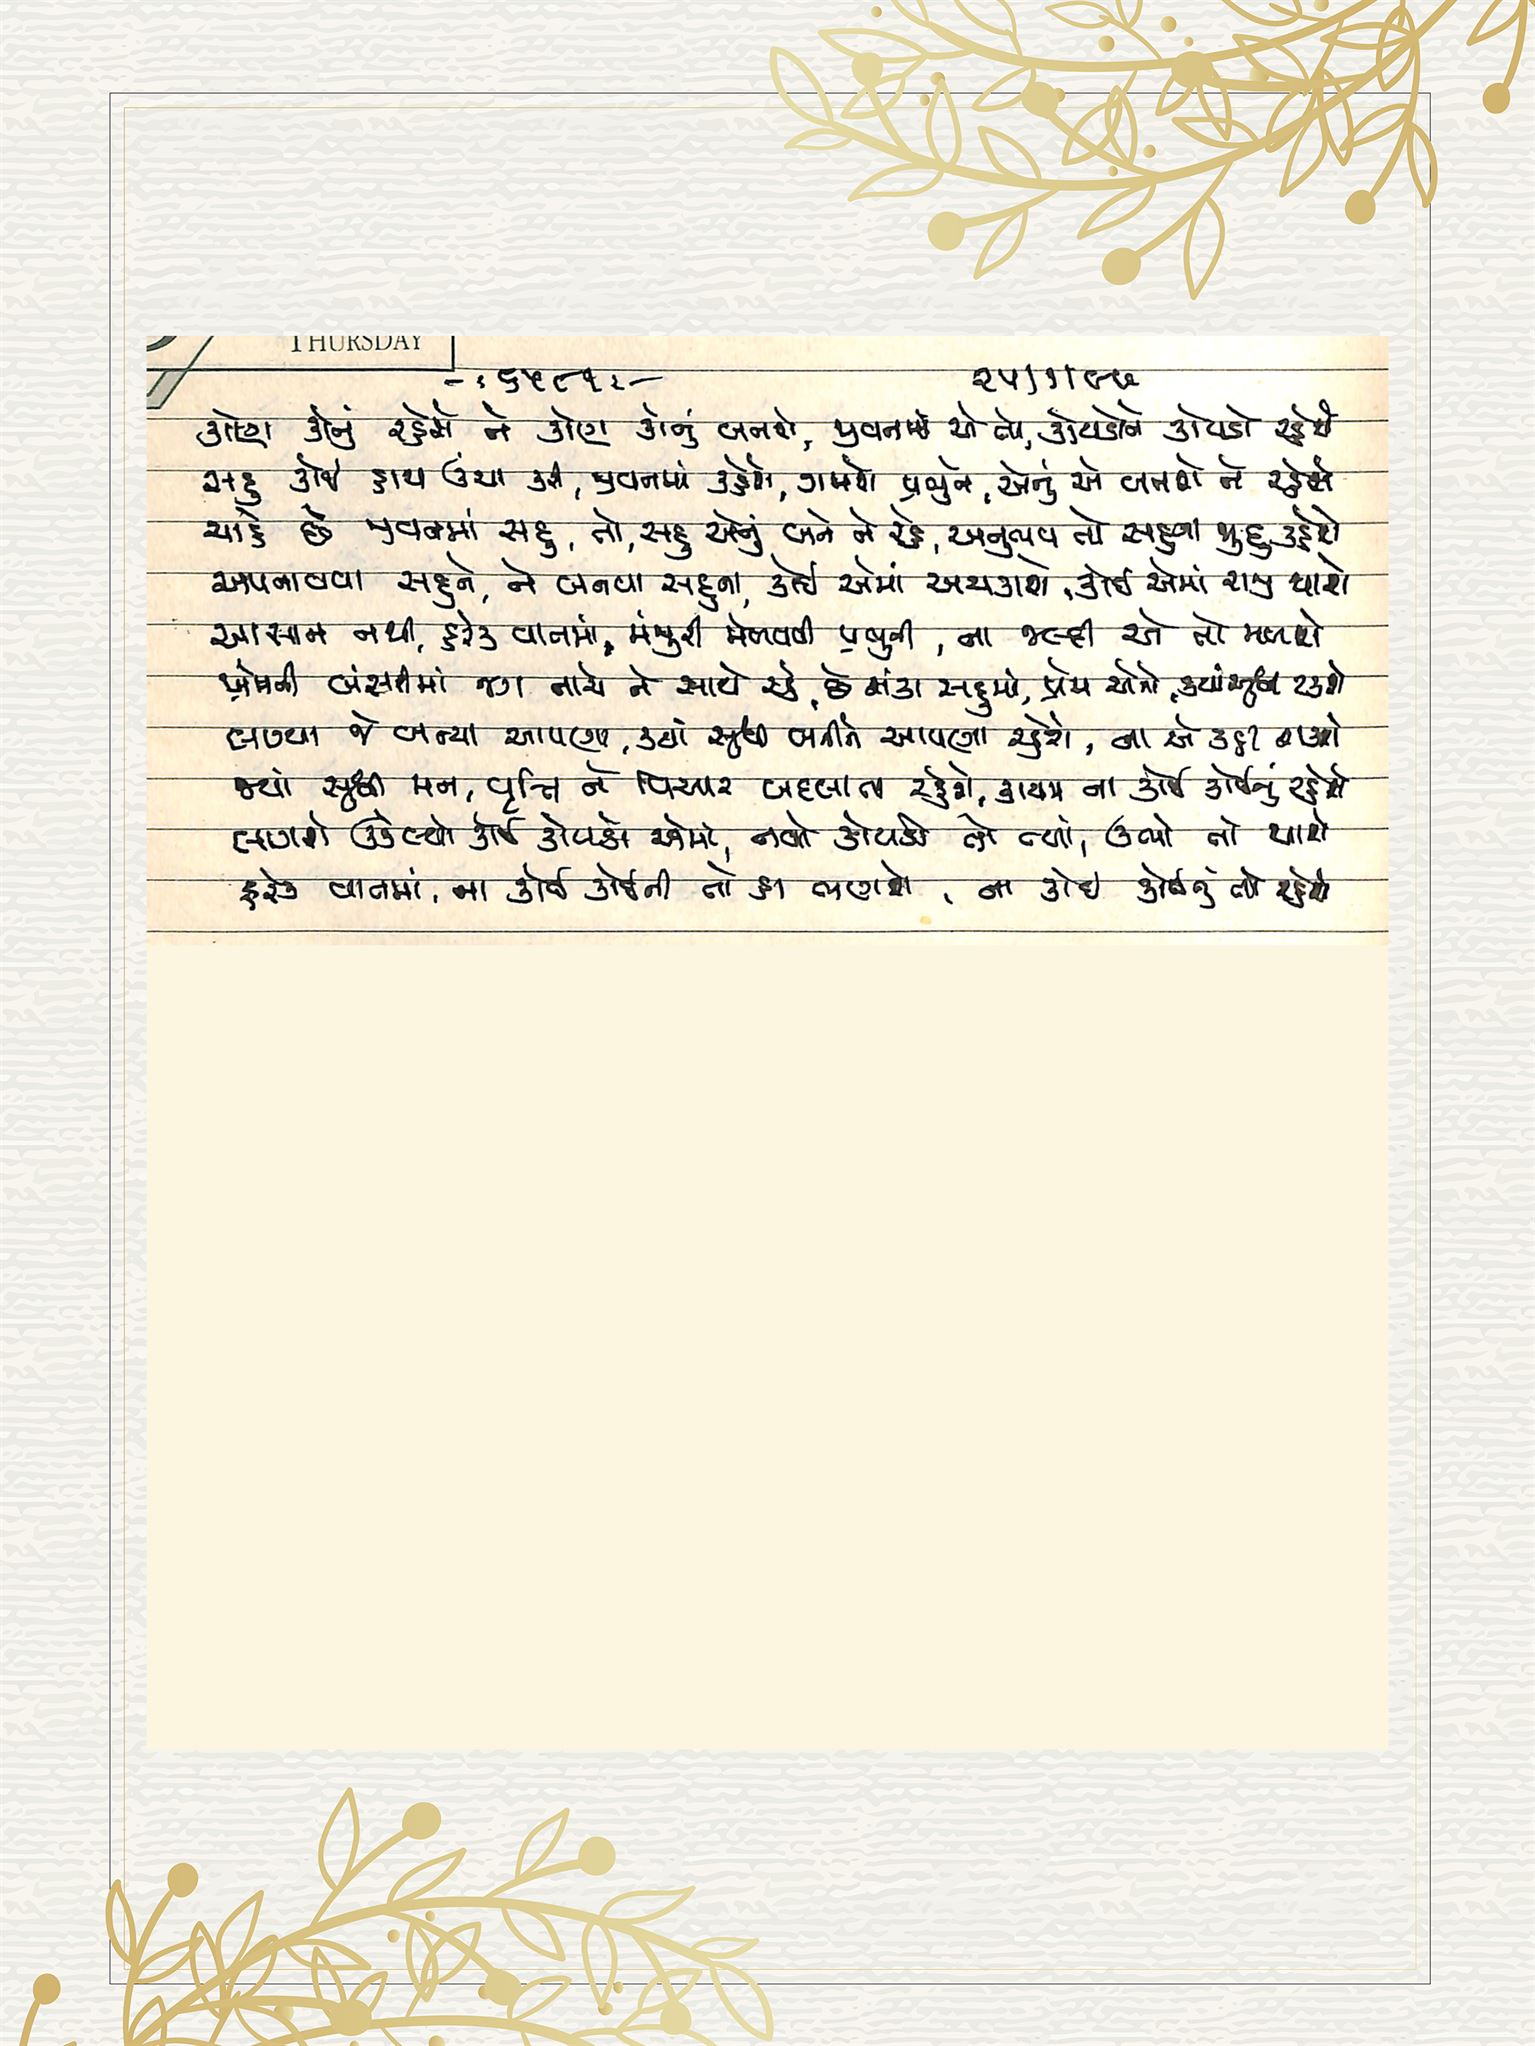 THURSDAY
-: ૬૫૯૧ :-  ૨૫/૧/૯૭
કોણ કોનું રહેશે ને કોણ કોનું બનશે, જીવનમાં એ તો, કોયડોને કોયડો રહેશે
સહુ કોઈ હાથ ઉંચા કરી, જીવનમાં કહેશે, ગમશે પ્રભુને, એનું એ બનશે ને રહેશે
ચાહે છે જીવનમાં સહુ, તો, સહુ એનું બને ને રહે, અનુભવ તો સહુના જુદુ કહેશે
અપનાવવા સહુને, ને બનવા સહુના, કોઈ એમાં અચકાશે, કોઈ એમાં રાજી થાશે
આસાન નથી, હરેક વાતમાં, મંજુરી મેળવવી પ્રભુની, ના જલ્દી એ તો મળશે
પ્રેમની બંસરીમાં જગ નાચે ને સાથે રહે, છે શંકા સહુમાં, પ્રેમ એનો, ક્યાં સુધી ટકશે
બણ્યા જે બન્યા આપણા, ક્યાં સુધી બનીને આપણા રહેશે, ના એ કહી શકાશે
જ્યાં સુધી મન, વૃત્તિ ને વિચાર બદલાતા રહેશે, કાયમ ના કોઈ કોઈનું રહેશે
લાગશે ઉકેલ્યો કોઈ કોયડો એમાં, નવો કોયડો તો ત્યાં, ઉભો તો થાશે
હરેક વાતમાં, ના કોઈ કોઈની તો હા ભણશે, ના કોઈ કોઈનું તો રહેશે